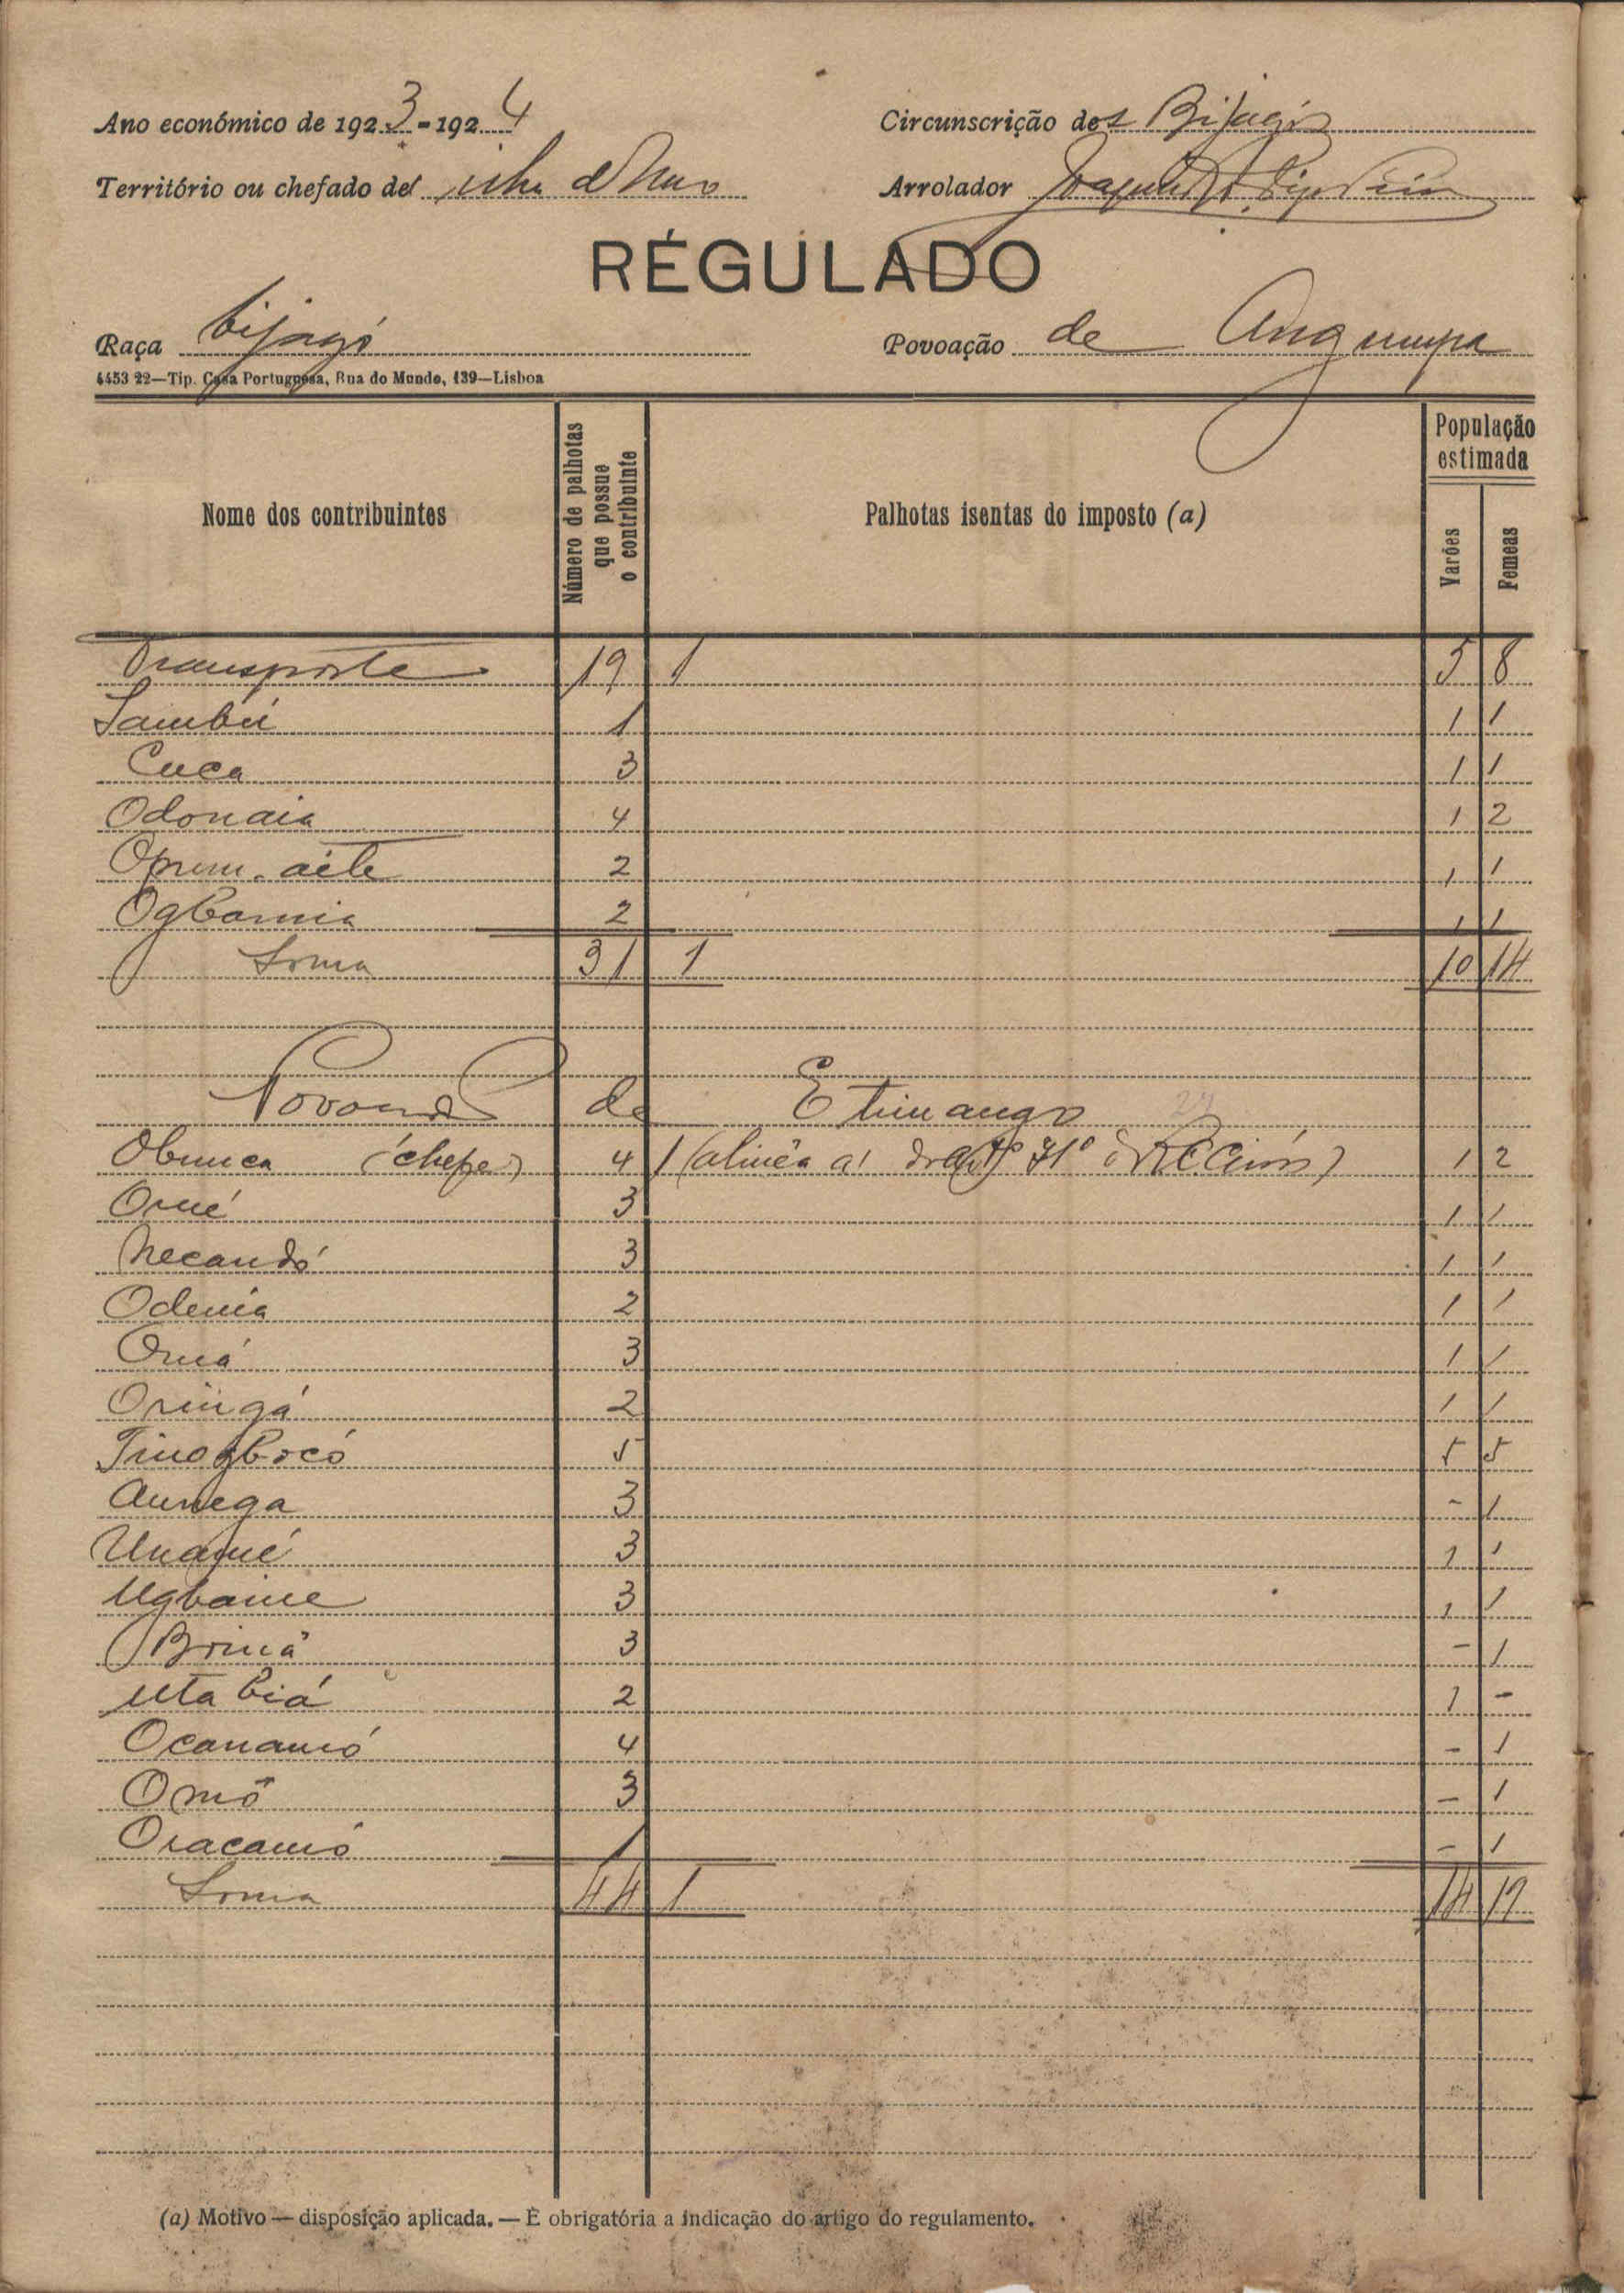 Ano económico de 1923-1924 Circunscrição dos Bijagós
Território ou chefado de ilha
Arrolador
RÉGULADO
Raça bijagó Povoação de
4453 22—Tip. Casa Portuguesa, Rua do Mundo, 139—Lisboa
Nome dos contribuintes Número de palhotas que possue o contribuinte Palhotas isentas do imposto (a) População estimada Varões Femeas
Transporte 19 1 5 8
Sambú 1 1 1
Cuca 3 1 1
Odonaia 4 1 2
2 1 1
2 1 1
Soma 31 1 10 14
de Etimango
(chefe) 4 1 (alinea a) do 1 2
Orué 3 1 1
Necandó 3 1 1
Odenia 2 1 1
3 1 1
Oringá 2 1 1
5 5 5
3 - 1
3 1 1
Ugbaine 3 1 1
3 - 1
Uta biá 2 1 -
Ocananió 4 - 1
Omô 3 - 1
Oracamó 1 - 1
Soma 44 1 14 19
(a) Motivo — disposição aplicada. — É obrigatória a indicação do artigo do regulamento.